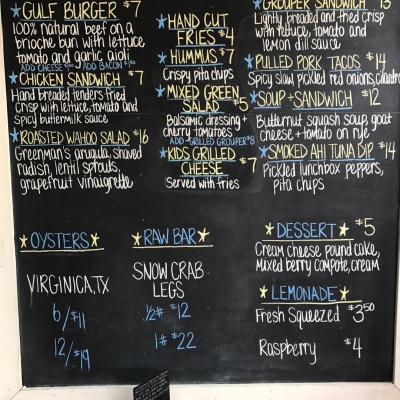 ★GULF BURGER $7
100% natural beef on a
brioche bun with lettuce
tomato and garlic aioli
ADD CHEESE ADD BACON
★CHICKEN SANDWICH $7
Hand breaded tenders fried
crisp with lettuce, tomato and
spicy buttermilk sauce
★ROASTED WAHOO SALAD $16
Greenman's arugula, shaved
radish, lentil sprouts,
grapefruit vinaigrette
★HAND CUT
FRIES $4
★HUMMUS $7
Crispy pita chips
★MIXED GREEN
SALAD $5
Balsamic dressing +
cherry tomatoes
ADD GRILLED GROUPER $8
★KIDS GRILLED
CHEESE $7
Served with fries
★GROUPER SANDWICH
Lightly breaded and fried crisp
with lettuce, tomato and
lemon dill sauce
★PULLED PORK TACOS $14
Spicy slaw, pickled red onions, cilantro
★SOUP + SANDWICH $12
Butternut squash soup, goat
cheese + tomato on rye
★SMOKED AHI TUNA DIP $14
Pickled lunchbox peppers,
pita chips
★OYSTERS★
VIRGINICA, TX
6/$11
12/$19
★RAW BAR★
SNOW CRAB
LEGS
½# $12
1# $22
★DESSERT★ $5
Cream cheese pound cake,
Mixed berry compote, cream
★LEMONADE★
Fresh Squeezed $3.50
Raspberry $4